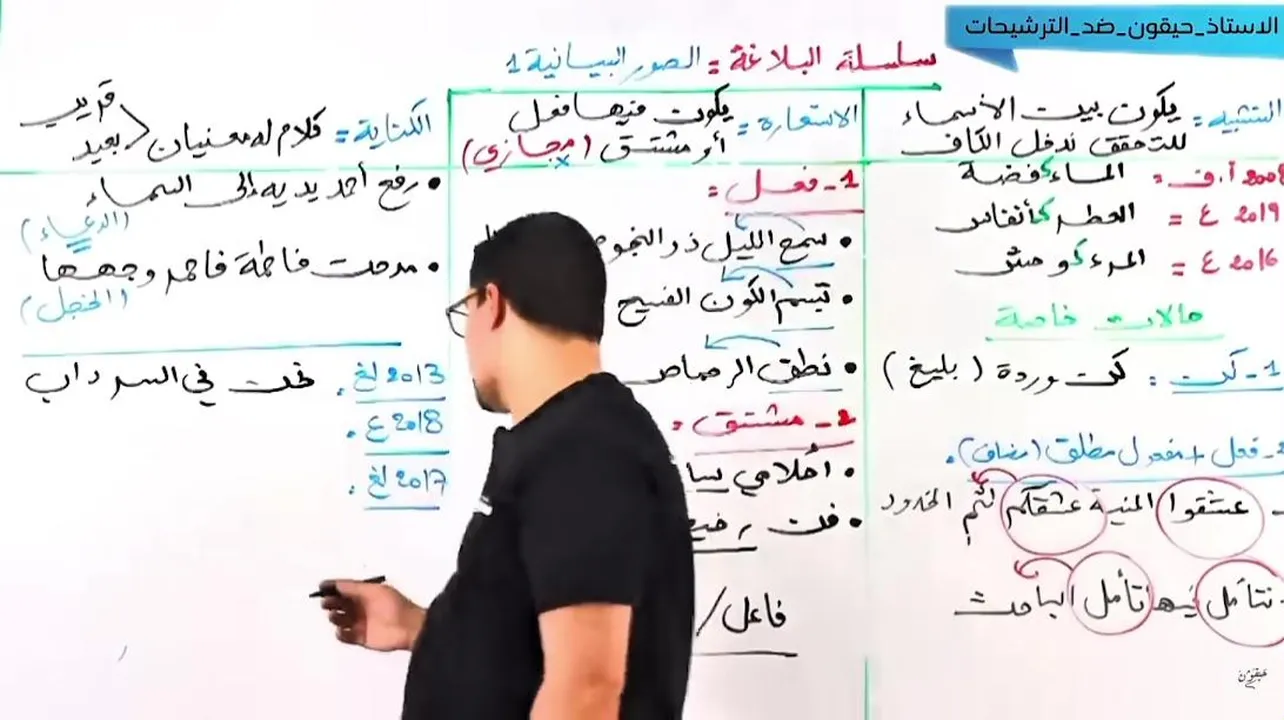 الاستاذ_حيقون_ضد_الترشيحات
سلسلة البلاغة = الصور البيانية 1
التشبيه = يكون بين الأسماء
للتحقق ندخل الكاف
2008 أ.ف = الماء ك فضة
2019 ع = العطر ك أنفاس
2016 ع = المرء ك وحش
حالات خاصة
1 - كنت : كنت وردة (بليغ)
2 - فعل + مفعول مطلق (مضاف).
عشقوا المنية عشقكم لثم الخدود
نتأمل فيها تأمل الباحث
الاستعارة = يكون فيها فعل
أو مشتق (مجازي)
x
1 - فعل =
• سمع الليل ذو النجوم
• تبسم الكون الفسيح
• نطق الرصاص
2 - مشتق =
• أحلامي
• فن
فاعل /
الكناية = كلام له معنيان قريب
بعيد
• رفع أحد يديه إلى السماء
(الدعاء)
• مدحت فاطمة فاحمر وجهها
(الخجل)
2013 لغ . نحن في السرداب
2018 ع .
2017 لغ .